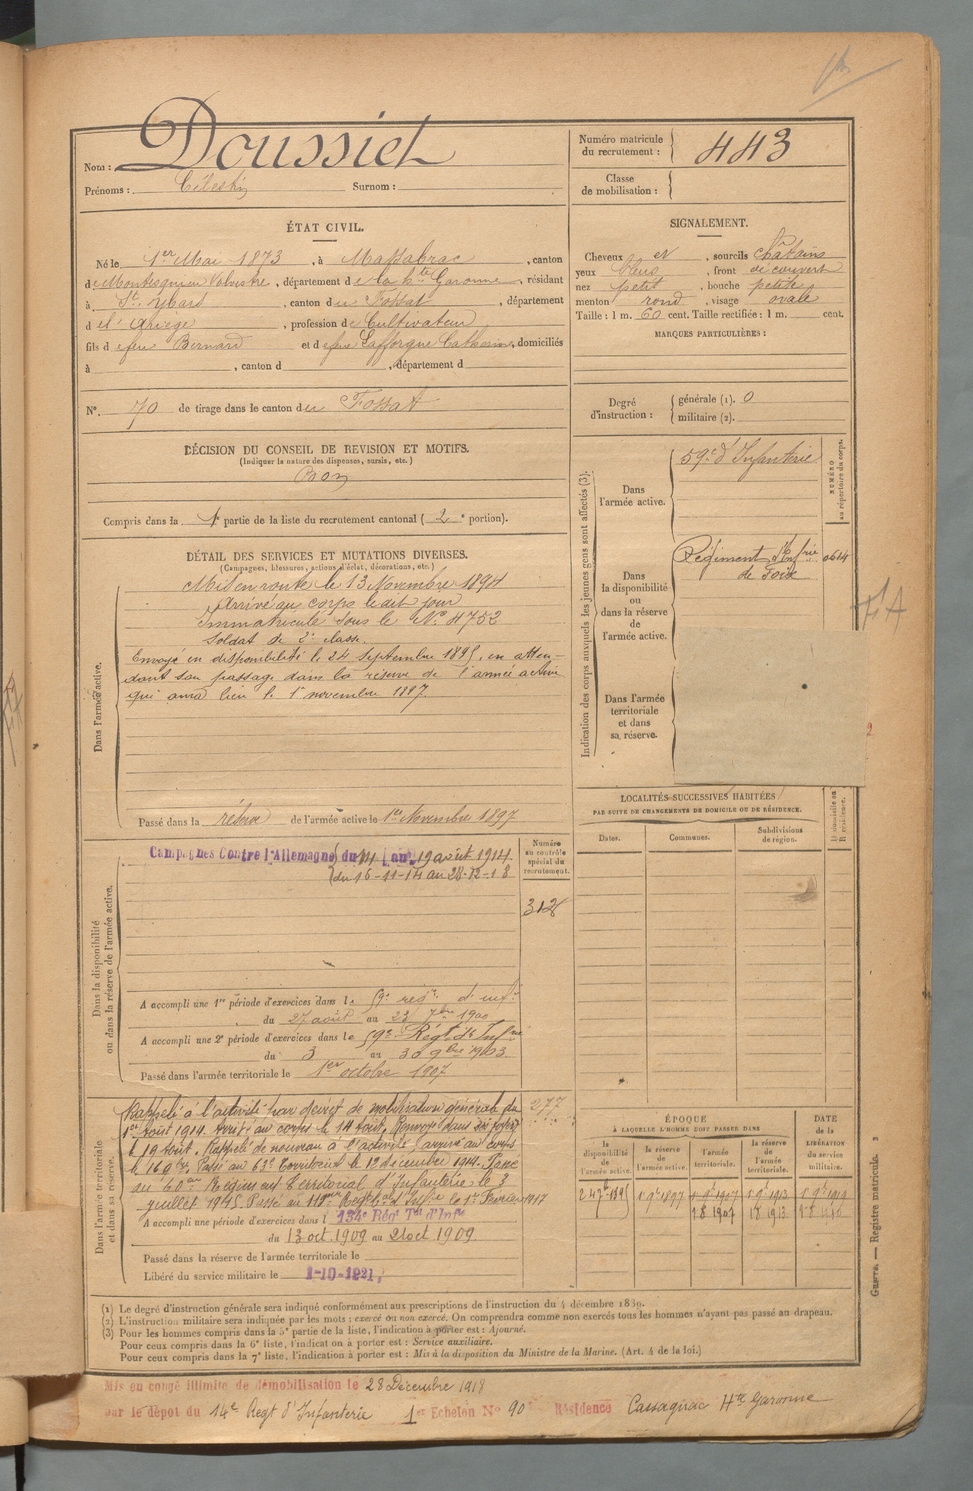 Nom : Doussiet
Prénoms : Célestin Surnom :
Numéro matricule du recrutement : 443
Classe de mobilisation :
ÉTAT CIVIL.
Né le 1er Mai 1873, à Massabrac, canton
de Montesquieu Volvestre, département de la Hte Garonne, résidant
à St. Ybars, canton du Fossat, département
d el' Ariège, profession de Cultivateur
fils de feu Bernard et de feue Lafforgue Catherine, domiciliés
à , canton d , département d
N° 70 de tirage dans le canton du Fossat
SIGNALEMENT.
Cheveux et , sourcils châtains
yeux bleus , front découvert
nez petit , bouche petite
menton rond , visage ovale
Taille : 1 m. 60 cent. Taille rectifiée : 1 m. cent.
MARQUES PARTICULIÈRES :
Degré d'instruction : générale (1). 0
militaire (2).
DÉCISION DU CONSEIL DE REVISION ET MOTIFS.
(Indiquer la nature des dispenses, sursis, etc.)
Bon
Compris dans la 1e partie de la liste du recrutement cantonal ( 2e portion).
DÉTAIL DES SERVICES ET MUTATIONS DIVERSES.
(Campagnes, blessures, actions d'éclat, décorations, etc.)
Dans l'armée active.
Mis en route le 13 Novembre 1894
Arrivé au corps le dit jour
Immatriculé sous le No 4752
Soldat de 2e classe.
Envoyé en disponibilité le 24 septembre 1895, en atten-
dant son passage dans la réserve de l'armée active
qui aura lieu le 1er novembre 1897.
Passé dans la réserve de l'armée active le 1er Novembre 1897
Indication des corps auxquels les jeunes gens sont affectés (3).
NUMÉRO au répertoire du corps.
Dans l'armée active.
59e d'Infanterie
Dans la disponibilité ou dans la réserve de l'armée active.
Régiment d'Infrie 0614
de Foix
Dans l'armée territoriale et dans sa réserve.
LOCALITÉS SUCCESSIVES HABITÉES
PAR SUITE DE CHANGEMENTS DE DOMICILE OU DE RÉSIDENCE.
Dates. Communes. Subdivisions de région.
Dans la disponibilité ou dans la réserve de l'armée active.
Campagnes Contre l'Allemagne du 14 au 19 août 1914
du 16-11-14 au 28-12-18
Numéro au contrôle spécial du recrutement.
A accompli une 1re période d'exercices dans le 59e régt d'inf.
du 27 août au 23 7bre 1900
A accompli une 2e période d'exercices dans le 59e Régt d'Infrie
du 3 au 30 9bre 1903
Passé dans l'armée territoriale le 1er octobre 1907
277
Dans l'armée territoriale et dans sa réserve.
Rappelé à l'activité par décret de mobilisation générale du
1er Août 1914. Arrivé au corps le 14 Août. Renvoyé dans ses foyers
le 19 Août. Rappelé de nouveau à l'activité, arrivé au corps
le 16 9bre. Passé au 63e Territorial le 12 décembre 1914. Passé
au 60e Régiment Territorial d'Infanterie le 3
juillet 1915. Passé au Régt d'Infie le 1er Février 1917
A accompli une période d'exercices dans l 134e Régt Tal d'Infie
du 13 oct. 1909 au 21 oct 1909.
Passé dans la réserve de l'armée territoriale le
Libéré du service militaire le 1-10-1921,
ÉPOQUE
À LAQUELLE L'HOMME DOIT PASSER DANS
la disponibilité de l'armée active.
la réserve de l'armée active.
l'armée territoriale.
la réserve de l'armée territoriale.
DATE de la LIBÉRATION du service militaire.
(1) Le degré d'instruction générale sera indiqué conformément aux prescriptions de l'instruction du 4 décembre 1889.
(2) L'instruction militaire sera indiquée par les mots : exercé ou non exercé. On comprendra comme non exercés tous les hommes n'ayant pas passé au drapeau.
(3) Pour les hommes compris dans la 5e partie de la liste, l'indication à porter est : Ajourné.
Pour ceux compris dans la 6e liste, l'indication à porter est : Service auxiliaire.
Pour ceux compris dans la 7e liste, l'indication à porter est : Mis à la disposition du Ministre de la Marine. (Art. 4 de la loi.)
Guerre. — Registre matricule. 3
Mis en congé illimité de démobilisation le 28 Décembre 1918
par le dépôt du 14e Regt d'Infanterie 1er Echelon N° 90 Résidence Cassagnac Hte Garonne